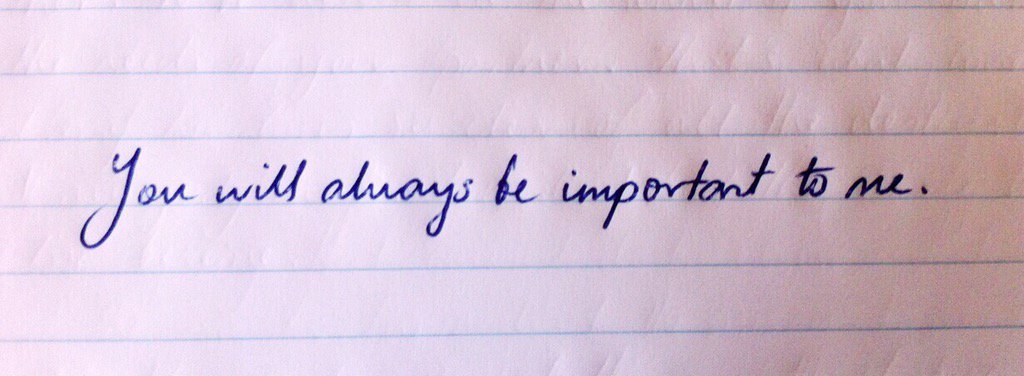 You will always be important to me.